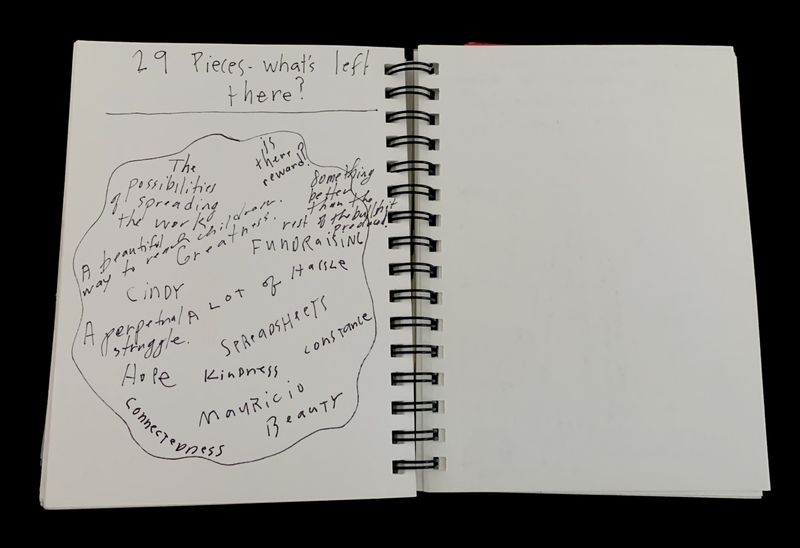 29 Pieces - what's left
there?
is
there a
reward?
The
possibilities
of spreading
the work
Something
better
than the
rest of the bullshit
produced.
A beautiful
way to reach children.
Greatness.
FUNDRAISING
CINDY
A LOT OF HASSLE
A perpetual
struggle.
SPREADSHEETS
CONSTANCE
HOPE
KINDNESS
MAURICIO
BEAUTY
CONNECTEDNESS